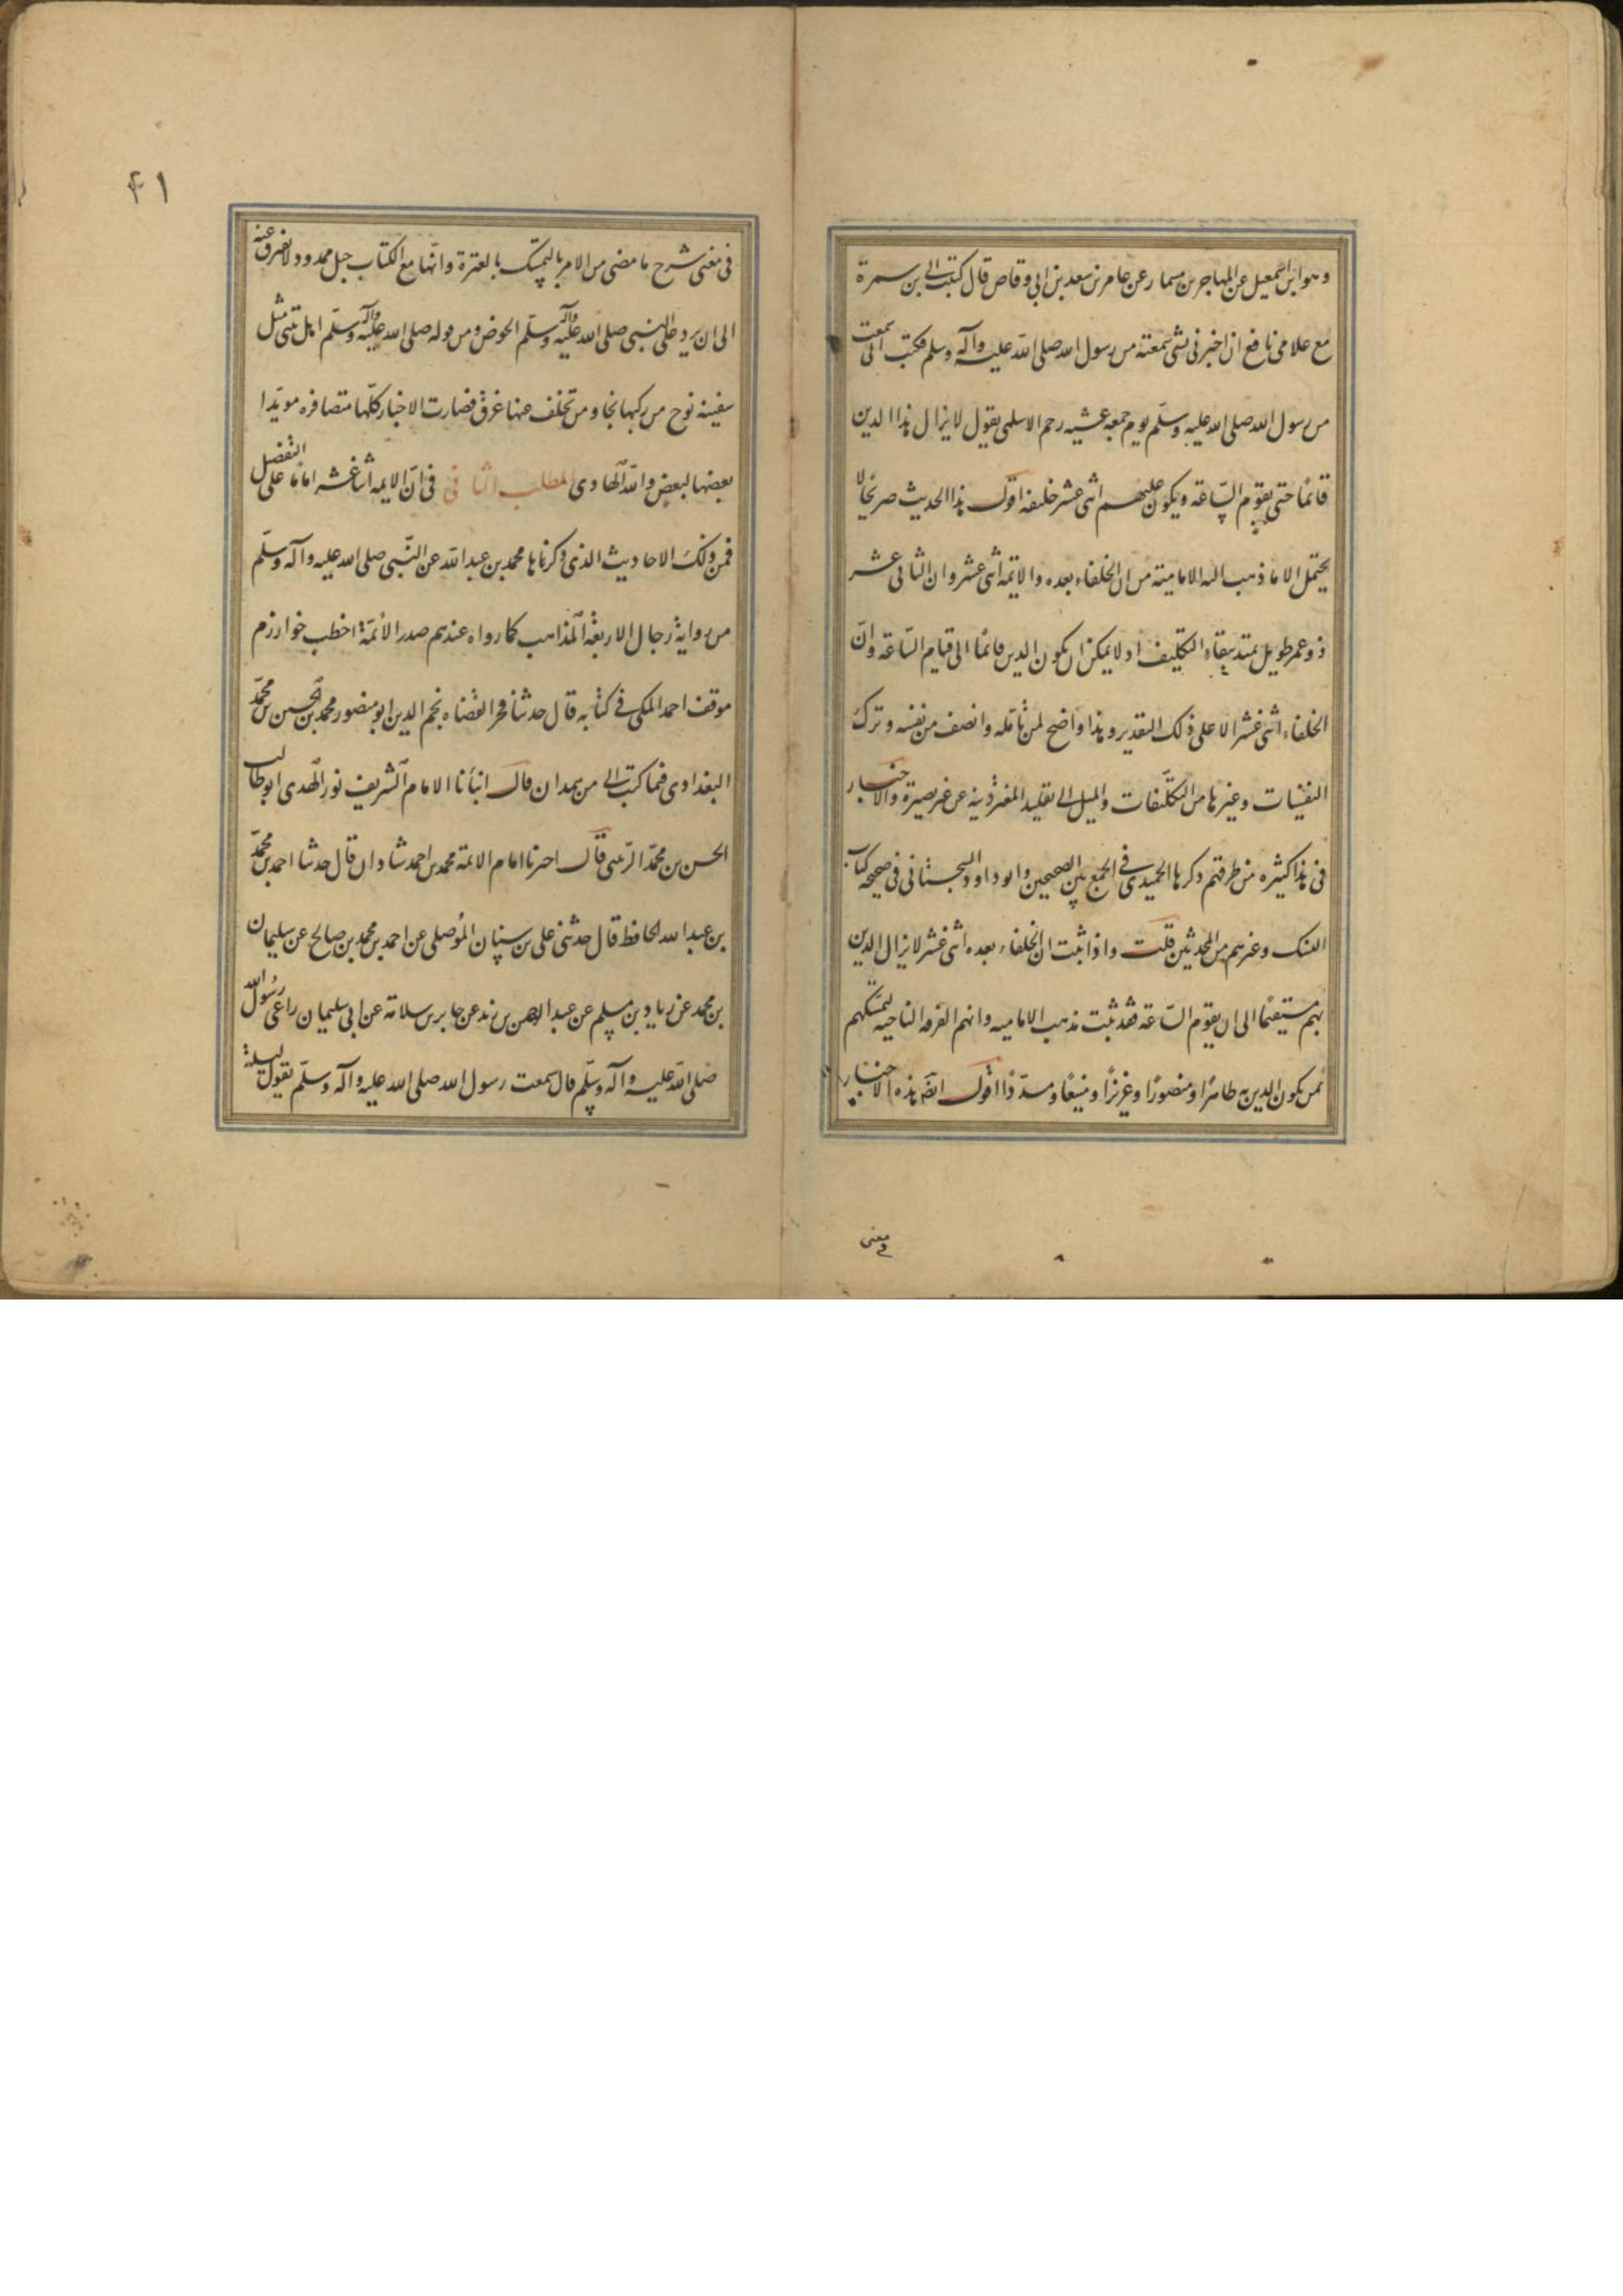 وهو ابن اسمعيل عن المهاجر بن مسمار عن عامر بن سعد بن ابى وقاص قال كتبت الى بن سمرة
مع غلامى نافع ان اخبرنى بشى سمعته من رسول الله صلى الله عليه وآله وسلم فكتب الى سمعت
من رسول الله صلى الله عليه وسلم يوم جمعه عشيه رجم الاسلمى يقول لا يزال هذا الدين
قائمًا حتى يقوم الساعة ويكون عليهم اثنى عشر خليفه اقول هذا الحديث صريحًا لا
يحتمل الا ما ذهب اليه الامامية من ان الخلفاء بعده والائمه اثنى عشر وان الثانى عشر
ذو عمر طويل يمتد ببقاء التكليف اذ لا يمكن ان يكون الدين قائمًا الى قيام الساعة وان
الخلفاء اثنى عشر الا على ذلك التقدير وهذا واضح لمن تأمله وانصف من نفسه وترك
وغيرها من التكلفات والميل الى تقليد عن غير بصيرة والاخبار
فى هذا كثيره من طرقهم ذكرها الحميدى فى الجمع بين الصحيحين وابو داود السجستانى فى صحيحه كتاب
وغيرهم من المحدثين قلت واذا ثبت ان الخلفاء بعده اثنى عشر لا يزال الدين
بهم مستقيمًا الى ان يقوم الساعة فقد ثبت مذهب الامامية وانهم الفرقه الناجيه لتمسكهم
بمن يكون الدين به ظاهرًا ومنصورًا وعزيزًا ومنيعًا ومسدّدًا اقول هذه الاخبار
فى معنى
۴۱
فى معنى شرح ما مضى من الامر بالتمسك بالعترة وانها مع الكتاب حبل ممدود ولا تفرق عنه
الى ان يرد على النبى صلى الله عليه وآله وسلم الحوض ومن قوله صلى الله عليه وآله وسلم اهل بيتى مثل
سفينة نوح من ركبها نجا ومن تخلف عنها غرق فصارت الاخبار كلها متضافره مويدا
بعضها لبعض والله الهادى المطلب الثانى فى ان الايمه اثنا عشر اماما على التفضل
فمن ذلك الاحاديث الذى ذكرناها محمد بن عبد الله عن النبى صلى الله عليه وآله وسلم
من رواية رجال الاربعة المذاهب كما رواه عندهم صدر الائمة اخطب خوارزم
موفق احمد المكى فى كتابه قال حدثنا فخر القضاه نجم الدين ابو منصور محمد بن الحسين بن محمد
البغدادى فيما كتب الى من همدان قال انبأنا الامام الشريف نور الهدى ابو طالب
الحسن بن محمد الزينبى قال اخبرنا امام الائمة محمد بن احمد شاذان قال حدثنا احمد بن محمد
بن عبد الله الحافظ قال حدثنى على بن سنان الموصلى عن احمد بن محمد بن صالح عن سليمان
بن محمد عن زياد بن مسلم عن عبد الرحمن بن زيد عن جابر بن سلامة عن ابى سليمان راعى رسول الله
صلى الله عليه وآله وسلم قال سمعت رسول الله صلى الله عليه وآله وسلم يقول ليلة